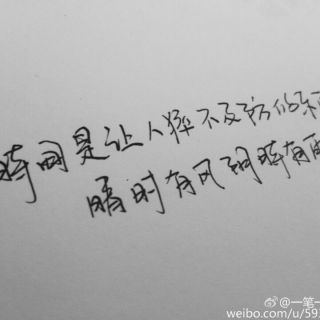 时间是让人猝不及防的东
晴时有风阴时有雨
@一笔一
weibo.com/u/593